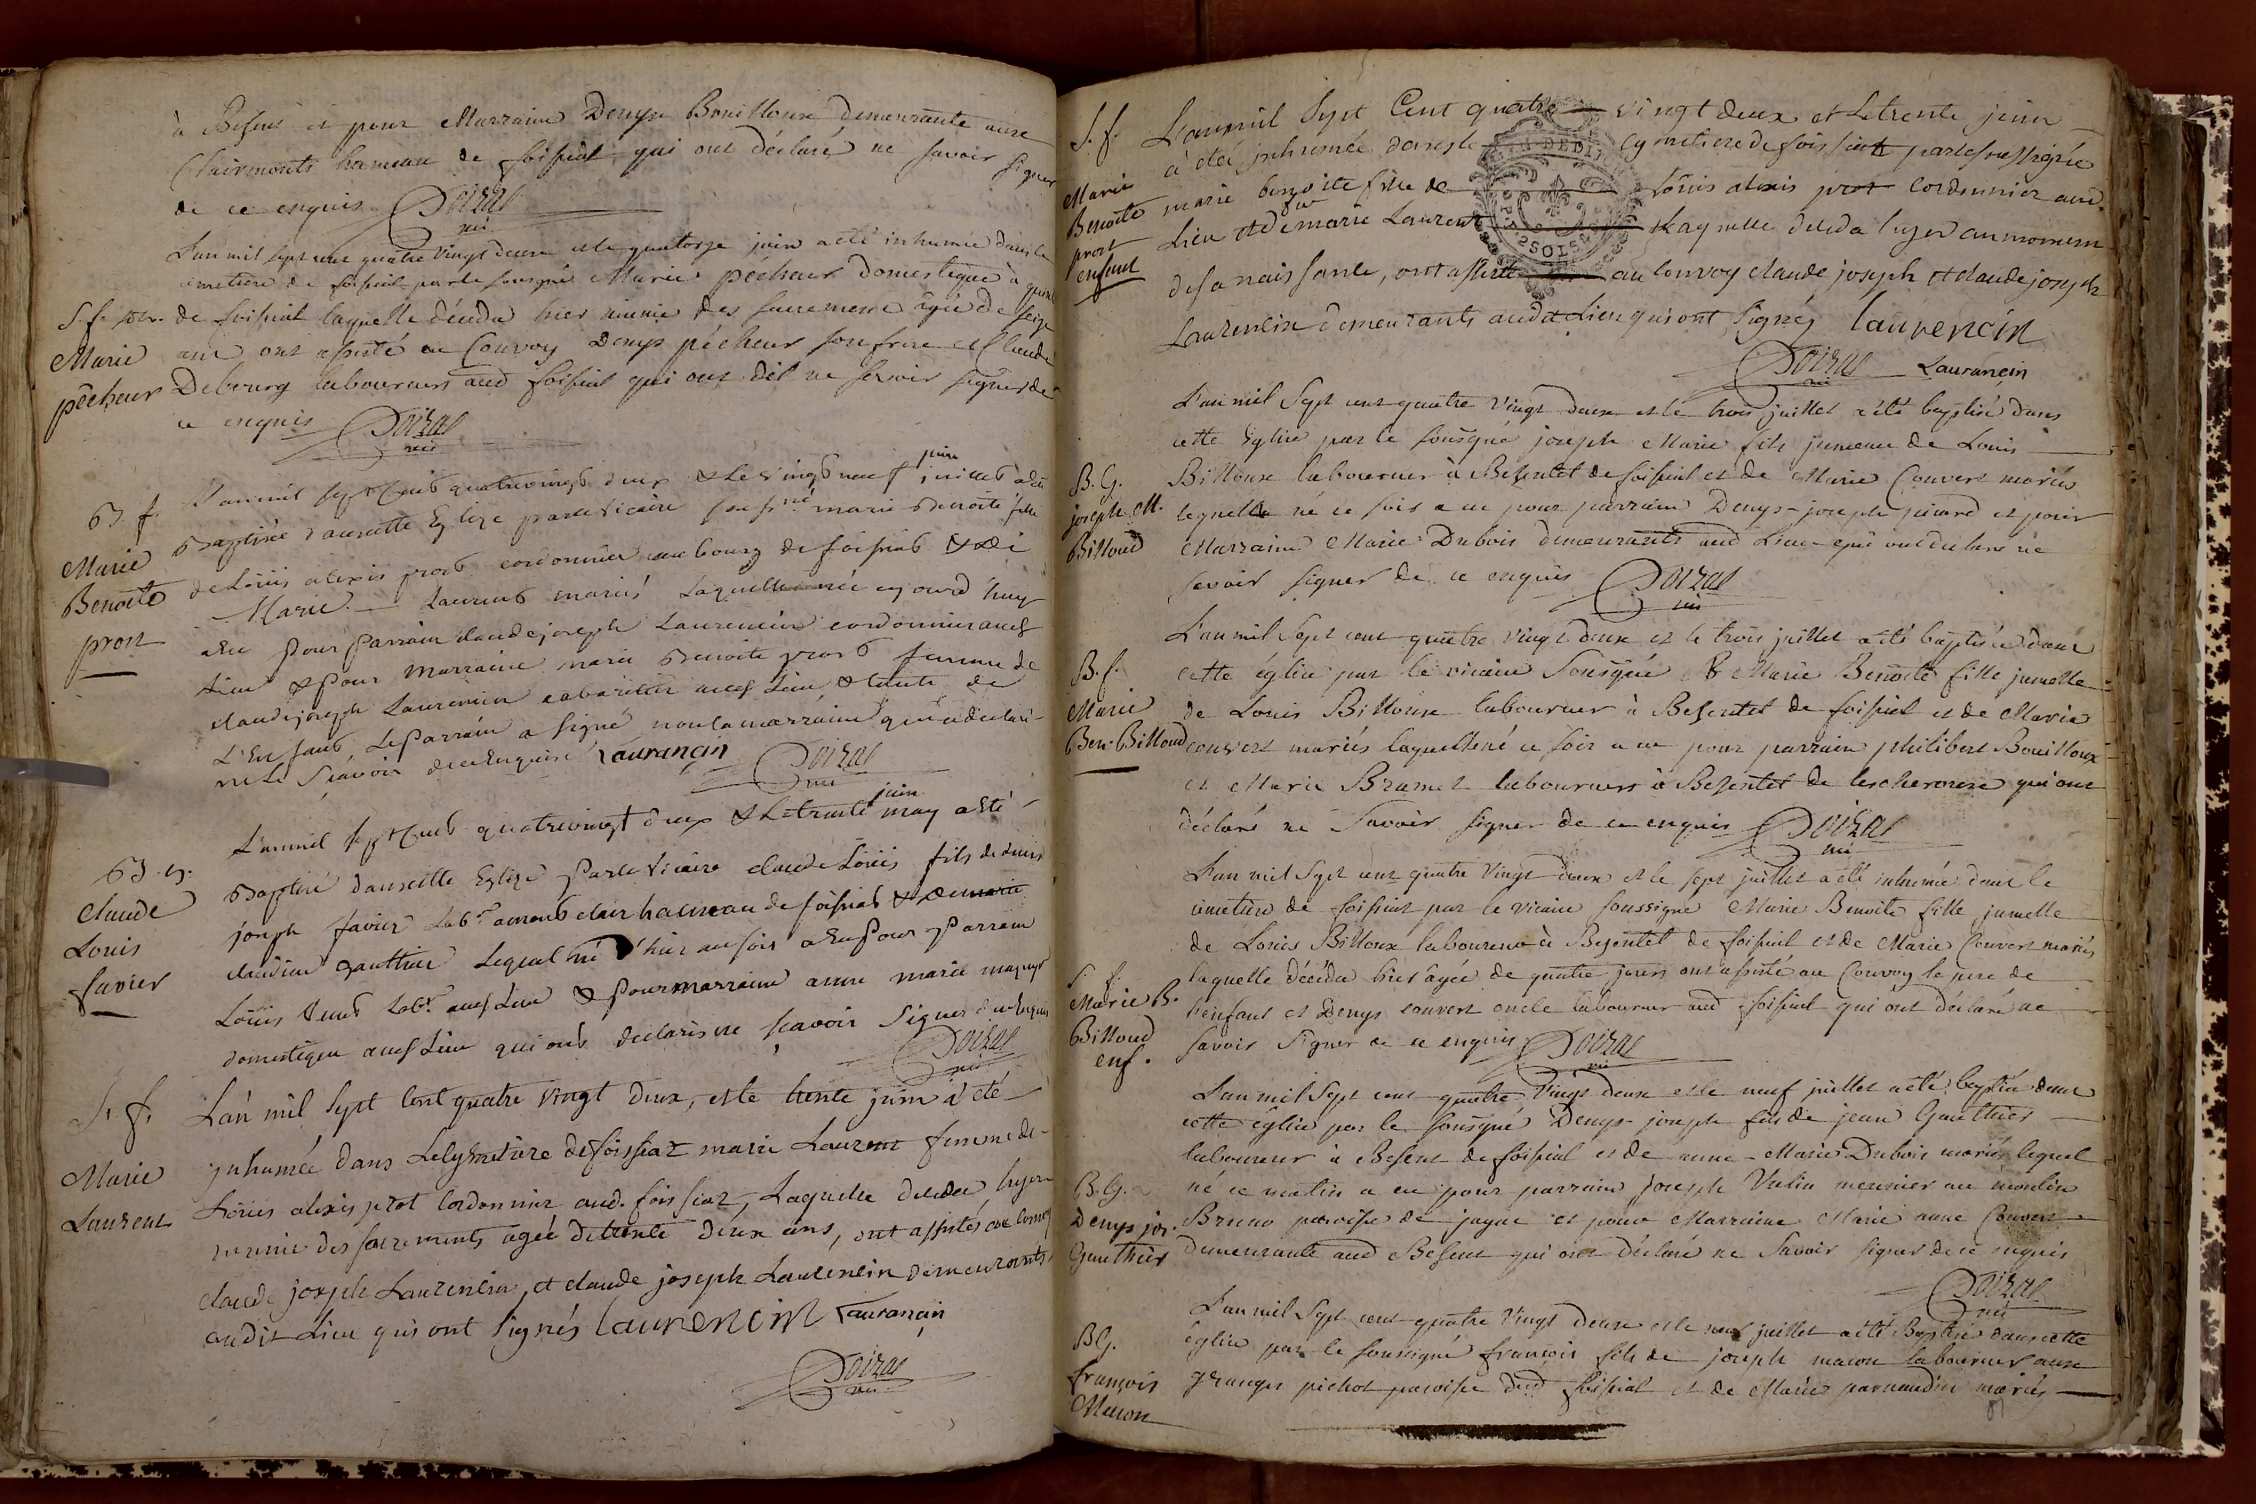 à Besent et pour Marraine Denyse Bouilloux demeurante aux
Clairmonts hameau de foissiat qui ont déclaré ne savoir signer
de ce enquis Poizat
vic
L'an mil sept cent quatre vingt deux et le quatorze juin a été inhumée dans le
cimetiere de foissiat par le sousigné Marie pécheur domestique à
S. f.
Marie
pêcheur
de foissiat laquelle décéda hier munie des sacremens âgée de seize
ans ont assisté au Convoy Denys pécheur son frere et Claude
Debourg laboureurs aud foissiat qui ont dit ne savoir signer de
ce enquis Poizat
vic
B. f.
Marie
Benoite
prost
juin
L'an mil sept Cent quatrevingt deux & le vingt neuf juillet a été
Baptisée dans cette Eglize par le vicaire soussigné marie Benoite fille
de Loüis alexis prost cordonnier au bourg de foissiat & de
Marie Laurent mariés Laquelle née aujourd'huy
a Eu pour parrain claude joseph Laurencin cordonnier aud
Lieu & pour marraine marie Benoite prost femme de
claude joseph Laurencin cabaretier aud Lieu & tante de
L'Enfant, Le parrain a signé non la marraine qui a declaré
ne le sçavoir de ce Enquise Laurançin Poizat
vic
B. g.
Claude
Louis
favier
juin
L'an mil sept Cent quatrevingt deux & Le trente may a Eté
Baptisé dans cette Eglize par le vicaire claude Loüis fils de denis
joseph favier labr. amont clair hameau de foissiat & de marie
claudine gauthier Lequel né d'hier au soir a Eu pour parrain
Loüis labr. aud Lieu & pour marraine anne marie
domestique aud Lieu qui ont declarés ne sçavoir signer de ce Enquis
Poizat
vic
S. f.
Marie
Laurent
L'an mil sept Cent quatre vingt deux, et le trente juin a été
inhumée dans Le Cymetiere de foissiaz marie Laurent femme de
Loüis alexis prot Cordonnier aud. foissiaz, Laquelle deceda hyer
munie des sacrements agée de trente deux ans, ont assistés au convoy
claude joseph Laurencin, et claude joseph Laurencin demeurants
audit Lieu qui ont signés laurencin Laurançin
Poizat
vic
S. f.
Marie
Benoite
prost
enfant
L'an mil sept Cent quatre vingt deux et Le trente juin
à été inhumée dans le Cymetiere de foissiatt par le soussigné
marie benoitte fille de Loüis alexis prot Cordonnier aud.
Lieu et de feue marie Laurent Laquelle deceda hyer au moment
de sa naissance, ont assisté au Convoy claude joseph et claude joseph
Laurencin demeurants audit Lieu qui ont signés laurencin
Poizat Laurançin
vic
B. G.
joseph M.
Billoud
L'an mil sept cent quatre vingt deux et le trois juillet a été baptisé dans
cette Eglise par le sousigné joseph Marie fils jumeau de Louis
Billoux laboureur à Besentet de foissiat et de Marie Couvert mariés
lequel né ce soir a eu pour parrain Denys-joseph picard et pour
Marraine Marie Dubois demeurants aud Lieu qui ont déclaré ne
savoir signer de ce enquis Poizat
vic
B. f.
Marie
Ben. Billoud
L'an mil sept cent quatre vingt deux et le trois juillet a été baptisée dans
cette église par le vicaire sousigné Marie Benoite fille jumelle
de Louis Billoux laboureur à Besentet de foissiat et de Marie
couvert mariés laquelle né ce soir a eu pour parrain philibert Bouilloux
et Marie Bramet laboureurs à Besentet de lescheroux qui ont
déclaré ne savoir signer de ce enquis Poizat
vic
S. f.
Marie B.
Billoud
enf.
L'an mil sept cent quatre vingt deux et le sept juillet a été inhumée dans le
cimetiere de foissiat par le vicaire soussigné Marie Benoite fille jumelle
de Louis Billoux laboureur à Besentet de foissiat et de Marie Couvert mariés
laquelle décéda hier âgée de quatre jours ont assisté au Convoy le pere de
l'enfant et Denys couvert oncle laboureur aud foissiat qui ont déclaré ne
savoir signer de ce enquis Poizat
vic
B. G.
Denys jos.
Gauthier
L'an mil sept cent quatre vingt deux et le neuf juillet a été baptisé dans
cette église par le sousigné Denys-joseph fils de jean Gauthier
laboureur à Besent de foissiat et de anne-Marie Dubois mariés lequel
né ce matin a eu pour parrain joseph Vulin meunier au moulin
Bruno paroisse de jayac et pour Marraine Marie anne Couvert
demeurante aud Besent qui ont déclaré ne savoir signer de ce enquis
Poizat
vic
B G.
françois
Macon
L'an mil sept cent quatre vingt deux et le neuf juillet a été Baptisé dans cette
église par le soussigné françois fils de joseph macon laboureur aux
granges pichot paroisse dud foissiat et de Marie parnaudin mariés